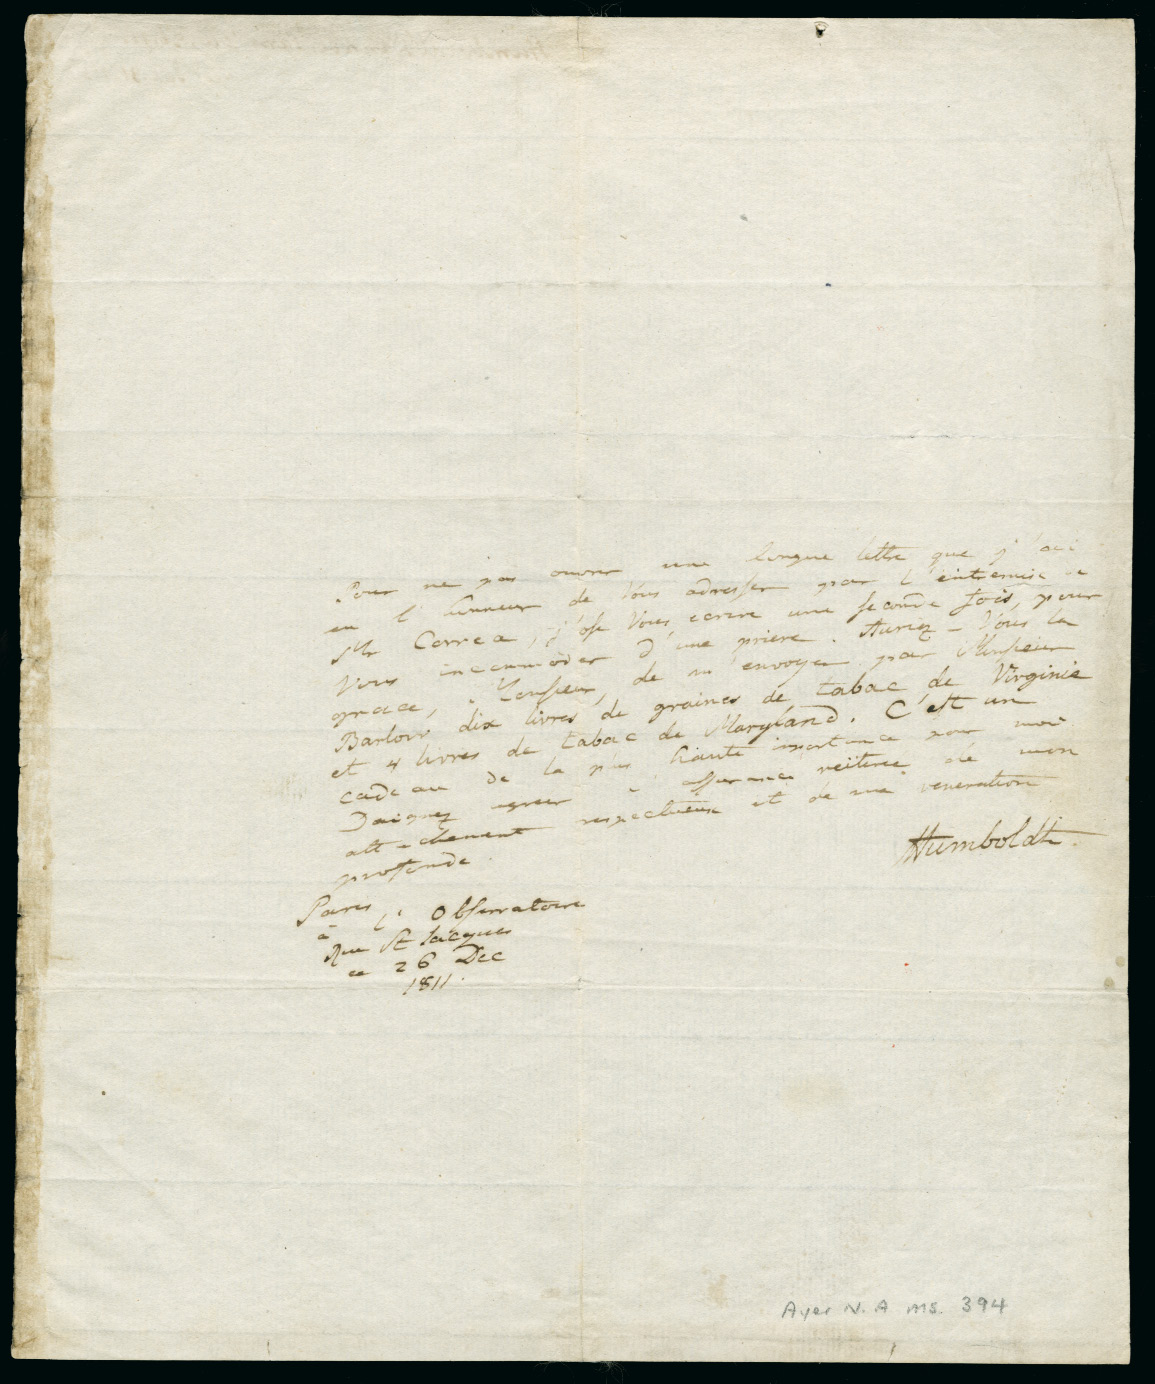 Pour ne pas ouvrir une longue lettre que j'ai
eu l'honneur de Vous adresser par l'entremise de
Mr Correa, j'ose Vous ecrire une seconde fois, pour
Vous incommoder d'une priere. Auriez-Vous la
grace, Monsieur, de m'envoyer par Monsieur
Barlow dix livres de graines de tabac de Virginie
et 4 livres de tabac de Maryland. C'est un
cadeau de la plus haute importance pour moi.
Daignez agreer l'assurance reiterée de mon
attachement respectueux et de ma veneration
profonde.
Humboldt.
Paris
à l'Observatoire
Rue St Jacques
ce 26 Dec
1811.
Ayer N. A. MS. 394